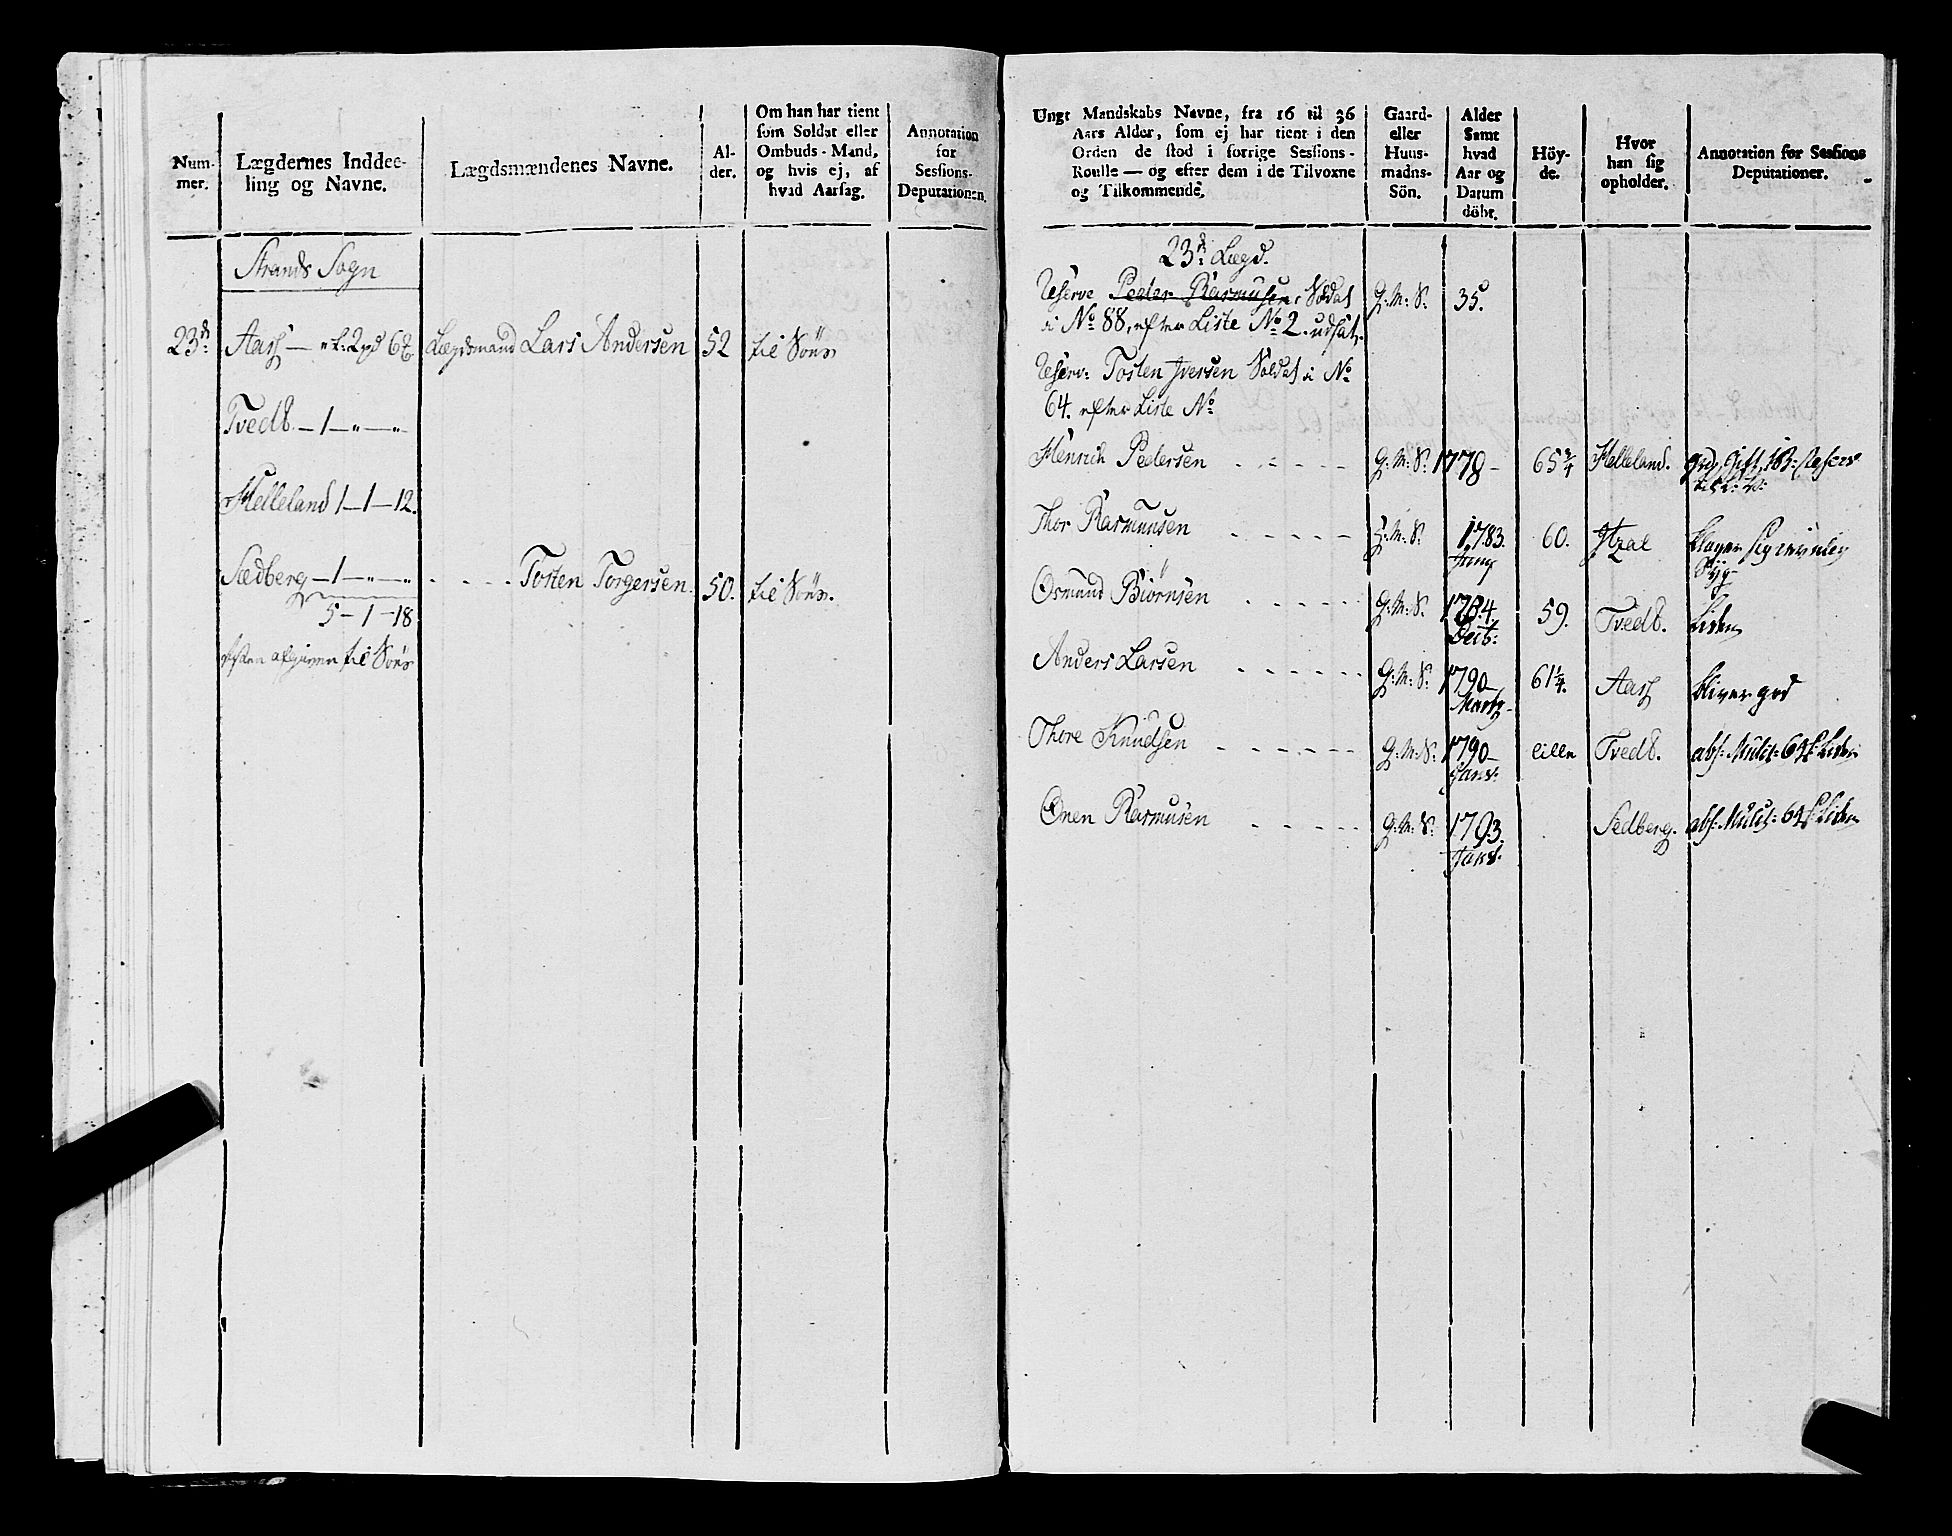 Num-
mer.
Lægdernes Inddee-
ling og Navne.
Lægdsmændenes Navne.
Al-
der.
Om han har tient
som Soldat eller
Ombuds-Mand,
og hvis ej, af
hvad Aarsag.
Annotation
for
Sessions-
Deputationen.
Strands Sogn
23d: Aass — Lægdsmand Lars Andersen 52 til Söes
Tvedt — 1 — „ — „
Helleland 1 — 1 — 12.
Sædberg — 1 — „ — „ - - - - Tosten Torgersen. 50. til Söes.
5 — 1 — 18
afgiven til Söes
Ungt Mandskabs Navne, fra 16 til 36
Aars Alder, som ej har tient i den
Orden de stod i forrige Sessions-
Roulle — og efter dem i de Tilvoxne
og Tilkommende.
Gaard-
eller
Huus-
mands-
Sön.
Alder
Samt
hvad
Aar og
Datum
döbt.
Höy-
de.
Hvor
han sig
opholder.
Annotation for Sessions
Deputationer.
23d: Lægd.
Reserve Peder Rasmusen Soldat G: M: S: 35.
i No 88, efter Liste No 2. udsat.
Reserv: Tosten Iversen Soldat i No
64. efter Liste No
Henrich Pedersen - - - - G: M: S: 1778 - 65 3/4 Helleland.
Thor Rasmuusen - - - - - G: M: S: 1783. 60.
Juny
Osmund Biörnsen - - - - - G: M: S: 1784. 59. Tvedt. liden
Decb:
Anders Larsen - - - - - - G: M: S: 1790 — 61 1/4. Aass bliver god
Martz
Thore Knudsen - - - - - - G: M: S: 1790 — lille Tvedt. abs: Mulct: 64 s liden
Janv:
Onen Rasmusen - - - - - G: M: S: 1793. Sedberg. abs: Mulct: 64 s liden
Janv.